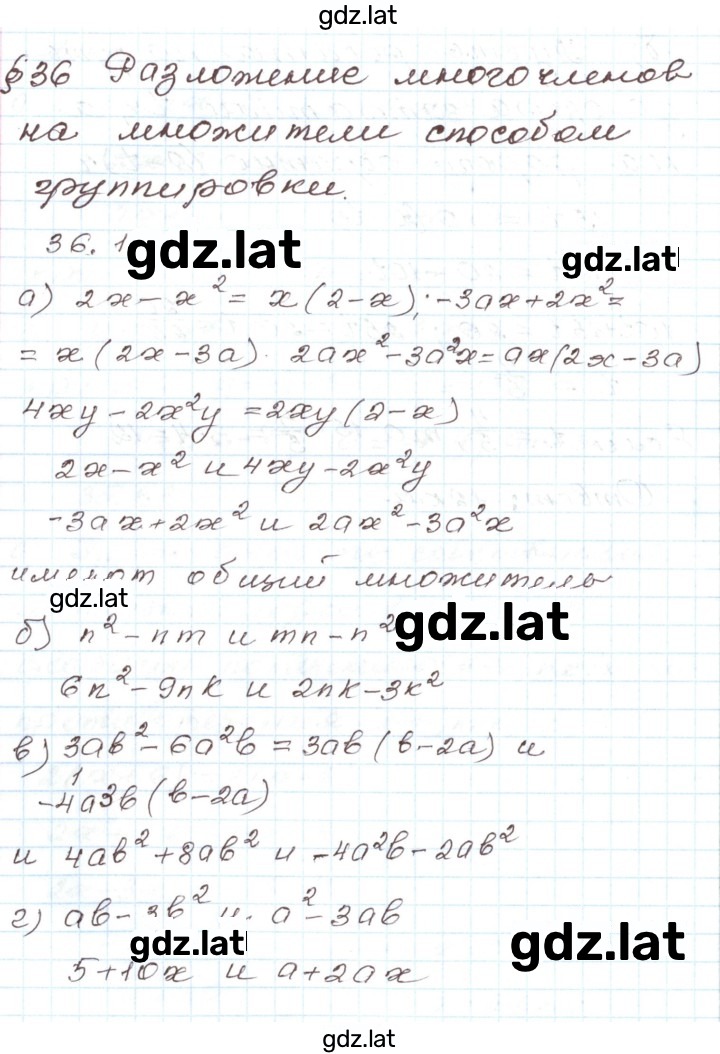 gdz.lat
§36 Разложение многочленов
на множители способом
группировки.
36.1
gdz.lat
gdz.lat
а) 2x - x² = x(2-x); -3ax+2x²=
= x(2x-3a). 2ax²-3a²x=ax(2x-3a)
4xy - 2x²y = 2xy(2-x)
2x-x² и 4xy-2x²y
-3ax+2x² и 2ax²-3a²x
имеют общий множитель
gdz.lat
б) n²-nm и mn-n²
gdz.lat
6n²-9nk и 2nk-3k²
в) 3ab²-6a²b = 3ab(b-2a) и
(b-2a)
и 4ab²+8ab² и -4a²b-2ab²
г) ab-3b² и a²-3ab
gdz.lat
gdz.lat
5+10x и a+2ax
gdz.lat